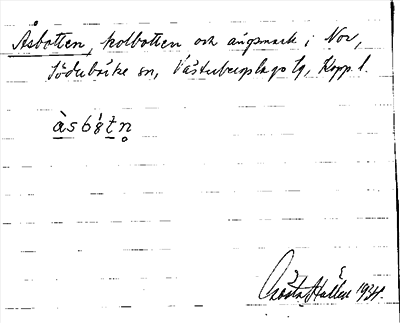 Åsbotten, kolbotten och ängsmark i Nor,
Söderbärke sn, Västerbergslags tg, Kopp. l.
àsbótn̥
Gösta Hallén 1934.